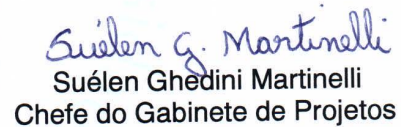 Suélen G. Martinelli
Suélen Ghedini Martinelli
Chefe do Gabinete de Projetos